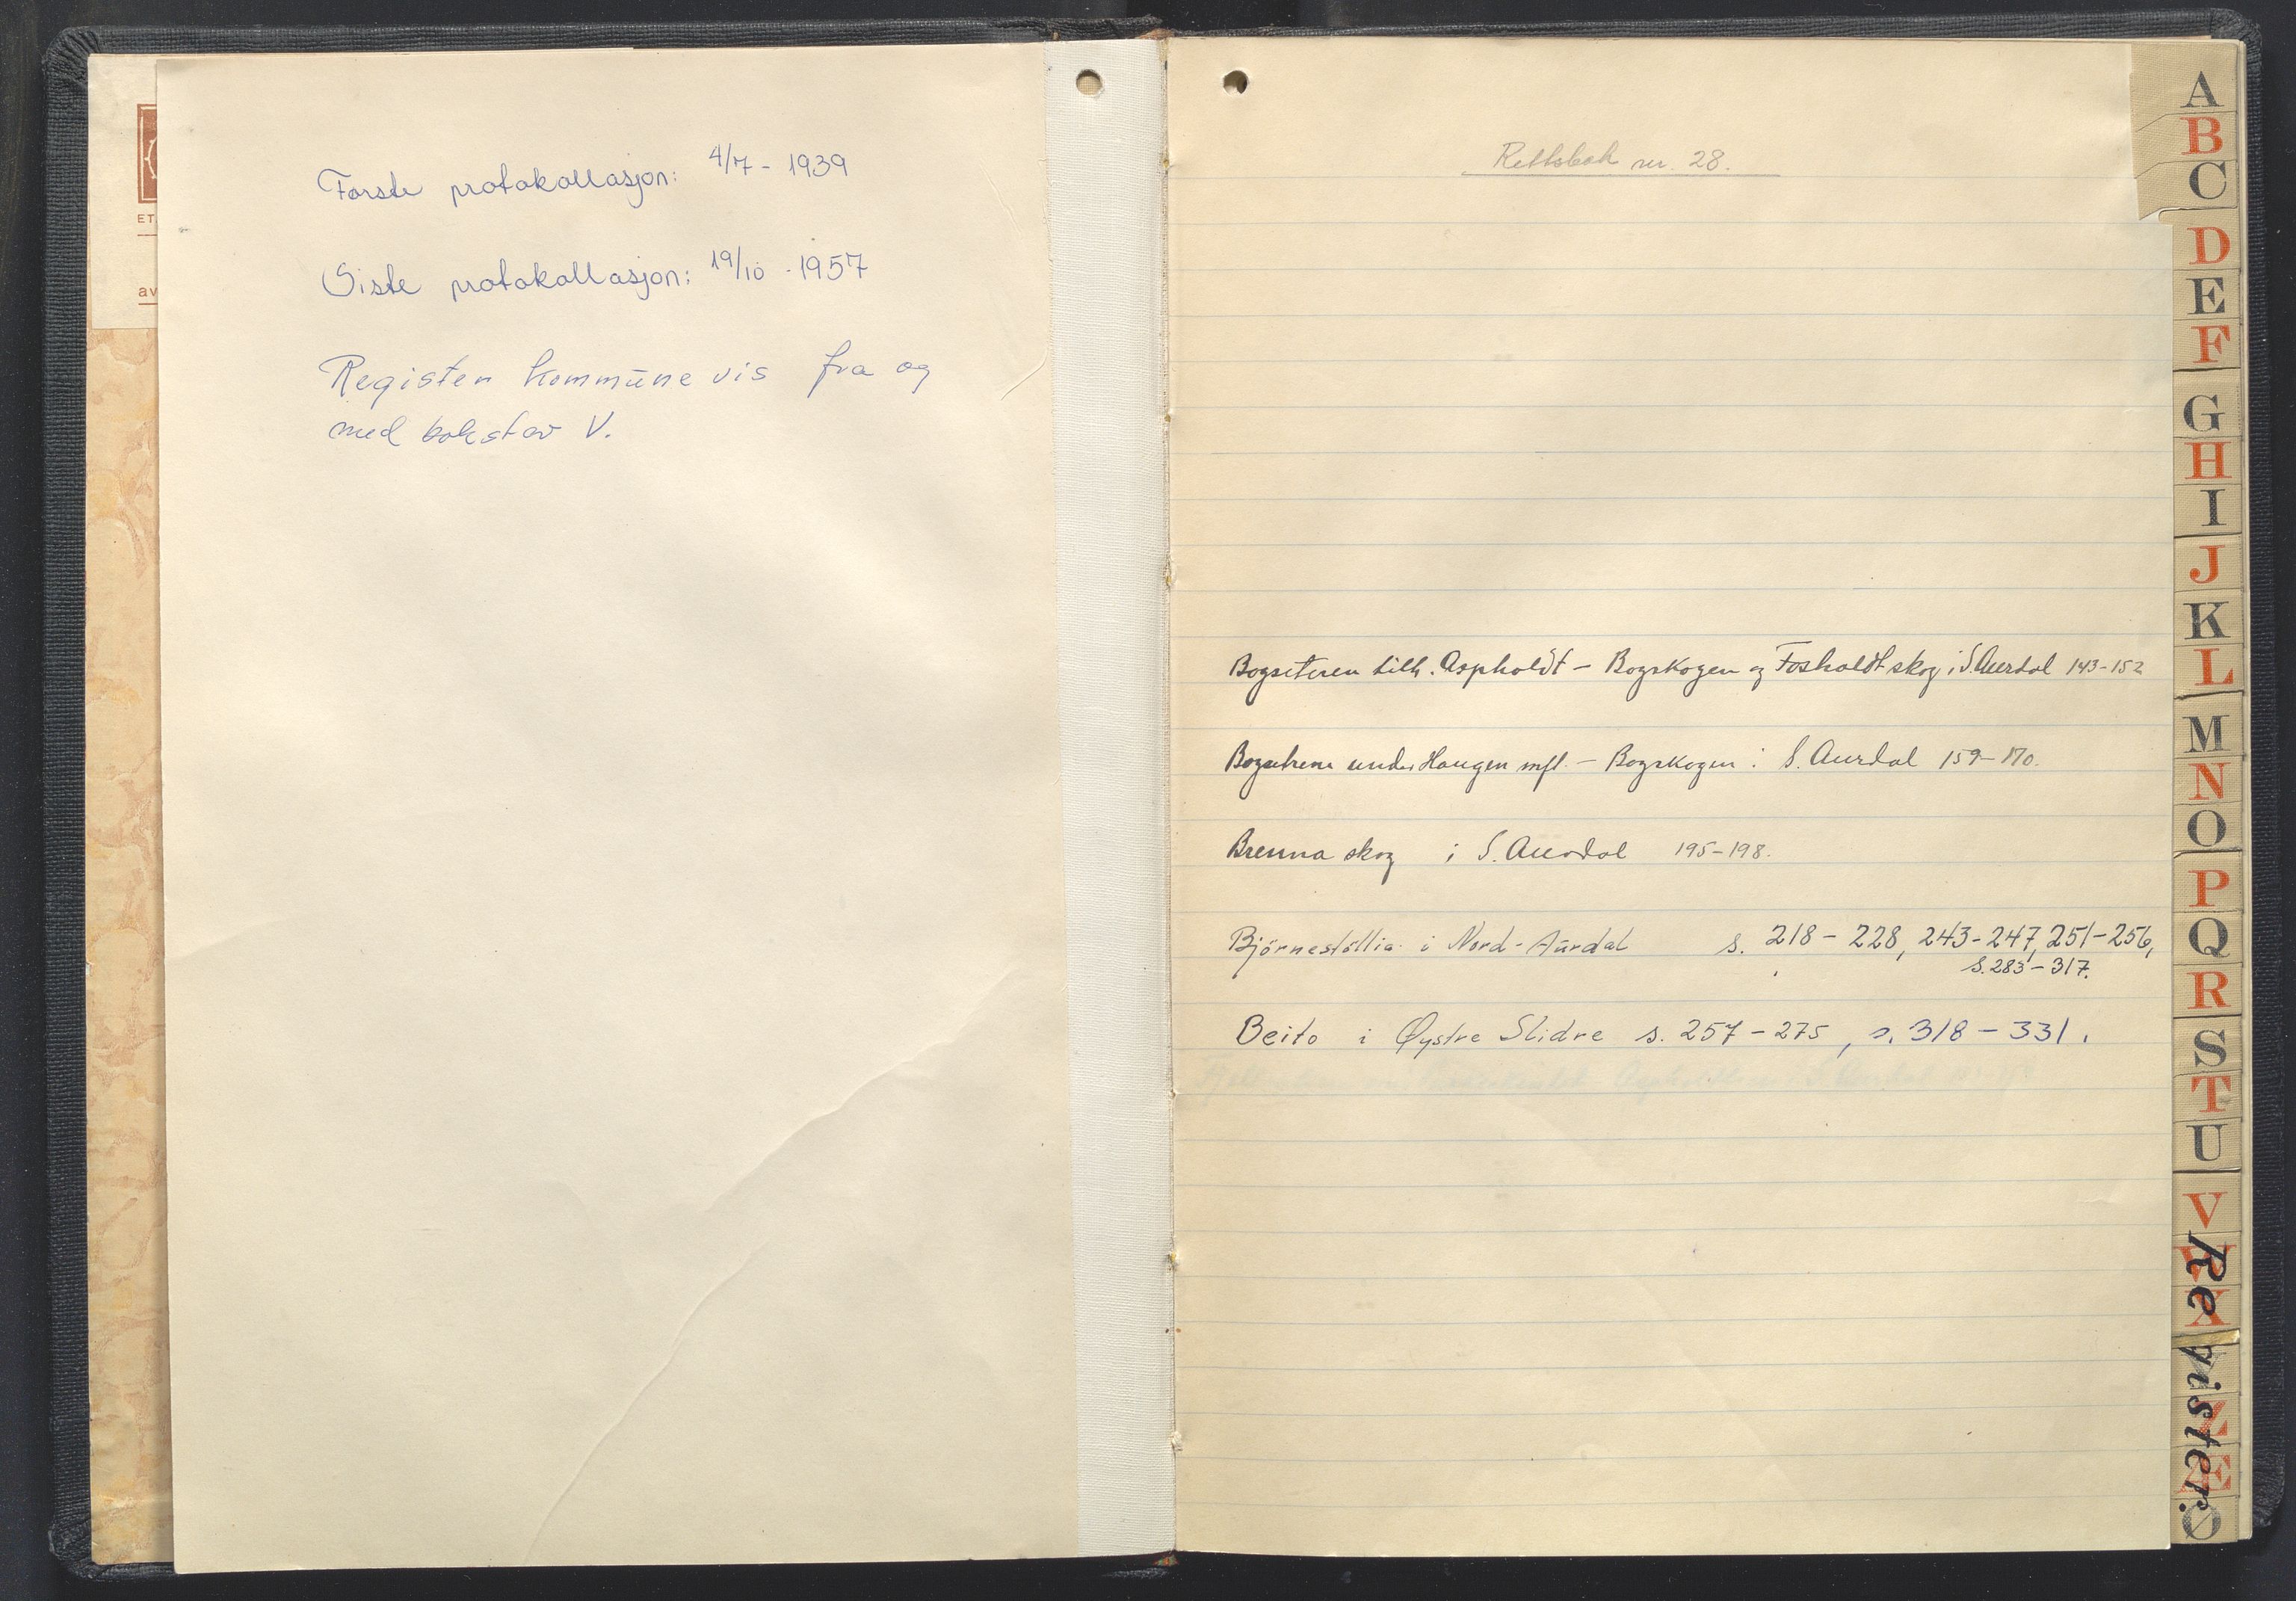 Første protokollasjon: 4/7 - 1939
Siste protokollasjon: 19/10 - 1957
Register kommunevis fra og
med bokstav V.
ET
av
Rettsbok nr. 28.
Bogseteren tilh. Aspholdt – Bogskogen og Fosholdt skog i S. Aurdal 143-152
Bogsetrene under Haugen mfl. – Bogskogen i S. Aurdal 159-170.
Brenna skog i S. Aurdal 195-198.
Björnestöllia i Nord-Aurdal s. 218 – 228, 243-247, 251-256,
s. 283 – 317.
Beito i Øystre Slidre s. 257 – 275, s. 318 – 331.
A
B
C
D
E
F
G
H
I
J
K
L
M
N
O
P
Q
R
S
T
U
V
W
X
Z
Æ
Ø
Register.